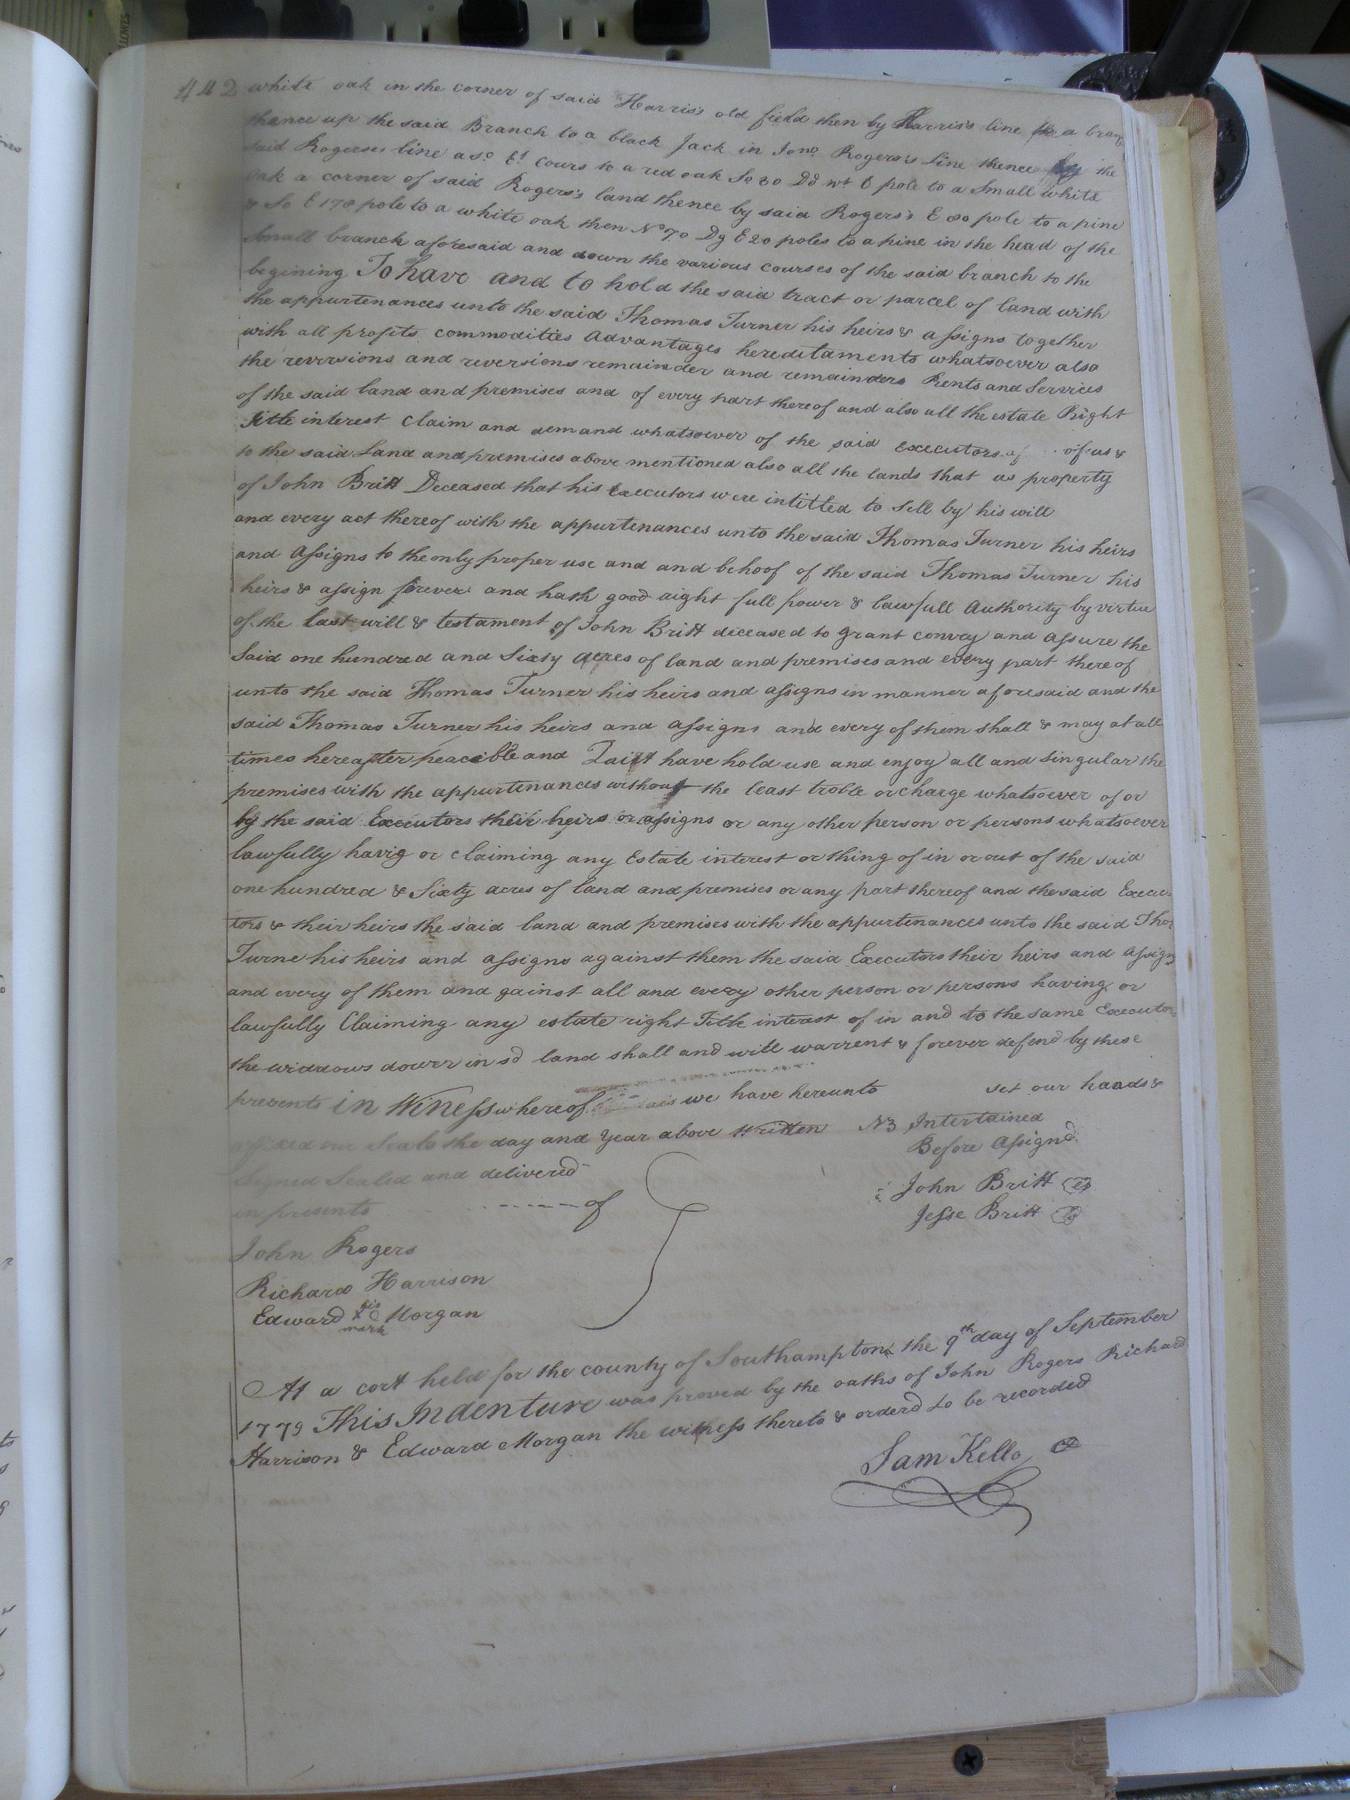 442 white oak in the corner of said Harris's old field then by Harris's line to a bran
thence up the said Branch to a black Jack in Jono. Rogers's Line thence by the
said Rogerses line a so. Et. Cours to a red oak So 30 Dd wt 6 pole to a Small white
oak a corner of said Rogers's land thence by said Rogers's E 80 pole to a pine
& So E 178 pole to a white oak then No 70 Dg E 20 poles to a pine in the head of the
Small branch aforesaid and down the various courses of the said branch to the
begining To have and to hold the said tract or parcel of land with
the appurtenances unto the said Thomas Turner his heirs & assigns together
with all profits commodities Advantages hereditaments whatsoever also
the reversions and reversions remainder and remainders Rents and Services
of the said land and premises and of every part thereof and also all the estate Right
Title interest Claim and demand whatsoever of the said executors of us &
to the said Land and premises above mentioned also all the lands that as property
of John Britt Deceased that his Executors were intitled to Sell by his will
and every act thereof with the appurtenances unto the said Thomas Turner his heirs
and Assigns to the only proper use and and behoof of the said Thomas Turner his
heirs & assign forever and hath good aight full power & lawfull Authority by virtue
of the last will & testament of John Britt diceased to grant convey and assure the
Said one hundred and Sixty acres of land and premises and every part there of
unto the said Thomas Turner his heirs and assigns in manner aforesaid and the
said Thomas Turner his heirs and assigns and every of them shall & may at all
times hereafter peacible and Quitt have hold use and enjoy all and Singular the
premises with the appurtenances without the least troble or charge whatsoever of or
by the said Executors their heirs or assigns or any other person or persons whatsoever
lawfully havig or claiming any Estate interest or thing of in or out of the said
one hundred & Sixty acres of land and premises or any part thereof and the said Execu-
tors & their heirs the said land and premises with the appurtenances unto the said Tho
Turne his heirs and assigns against them the said Executors their heirs and assign
and every of them and gainst all and every other person or persons having or
lawfully Claiming any estate right Title interest of in and to the same Executor
the widdows dowrr in sd land shall and will warrent & forever defend by these
presents in Witness whereof we have hereunto set our haads &
affixed our Seals the day and year above Written NB Intertained
Before Assignd
Signed Sealed and delivered
in presents of
John Britt
Jesse Britt
John Rogers
Richard Harrison
Edward his mark Morgan
At a cort held for the county of Southampton the 9th day of September
1779 This Indenture was proved by the oaths of John Rogers Richard
Harrison & Edward Morgan the witness thereto & orderd to be recorded
Sam Kello